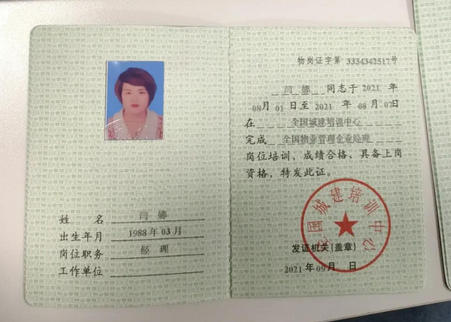 姓 名 闫娜
出生年月 1988年03月
岗位职务 经理
工作单位
物岗证字第 3334342517号
闫娜 同志于 2021 年
08月 01日至 2021 年 08月 07日
在 全国城建培训中心
完成 全国物业管理企业经理
岗位培训，成绩合格，具备上岗
资格，特发此证。
全国城建培训中心
发证机关（盖章）
2021 年 09月 日